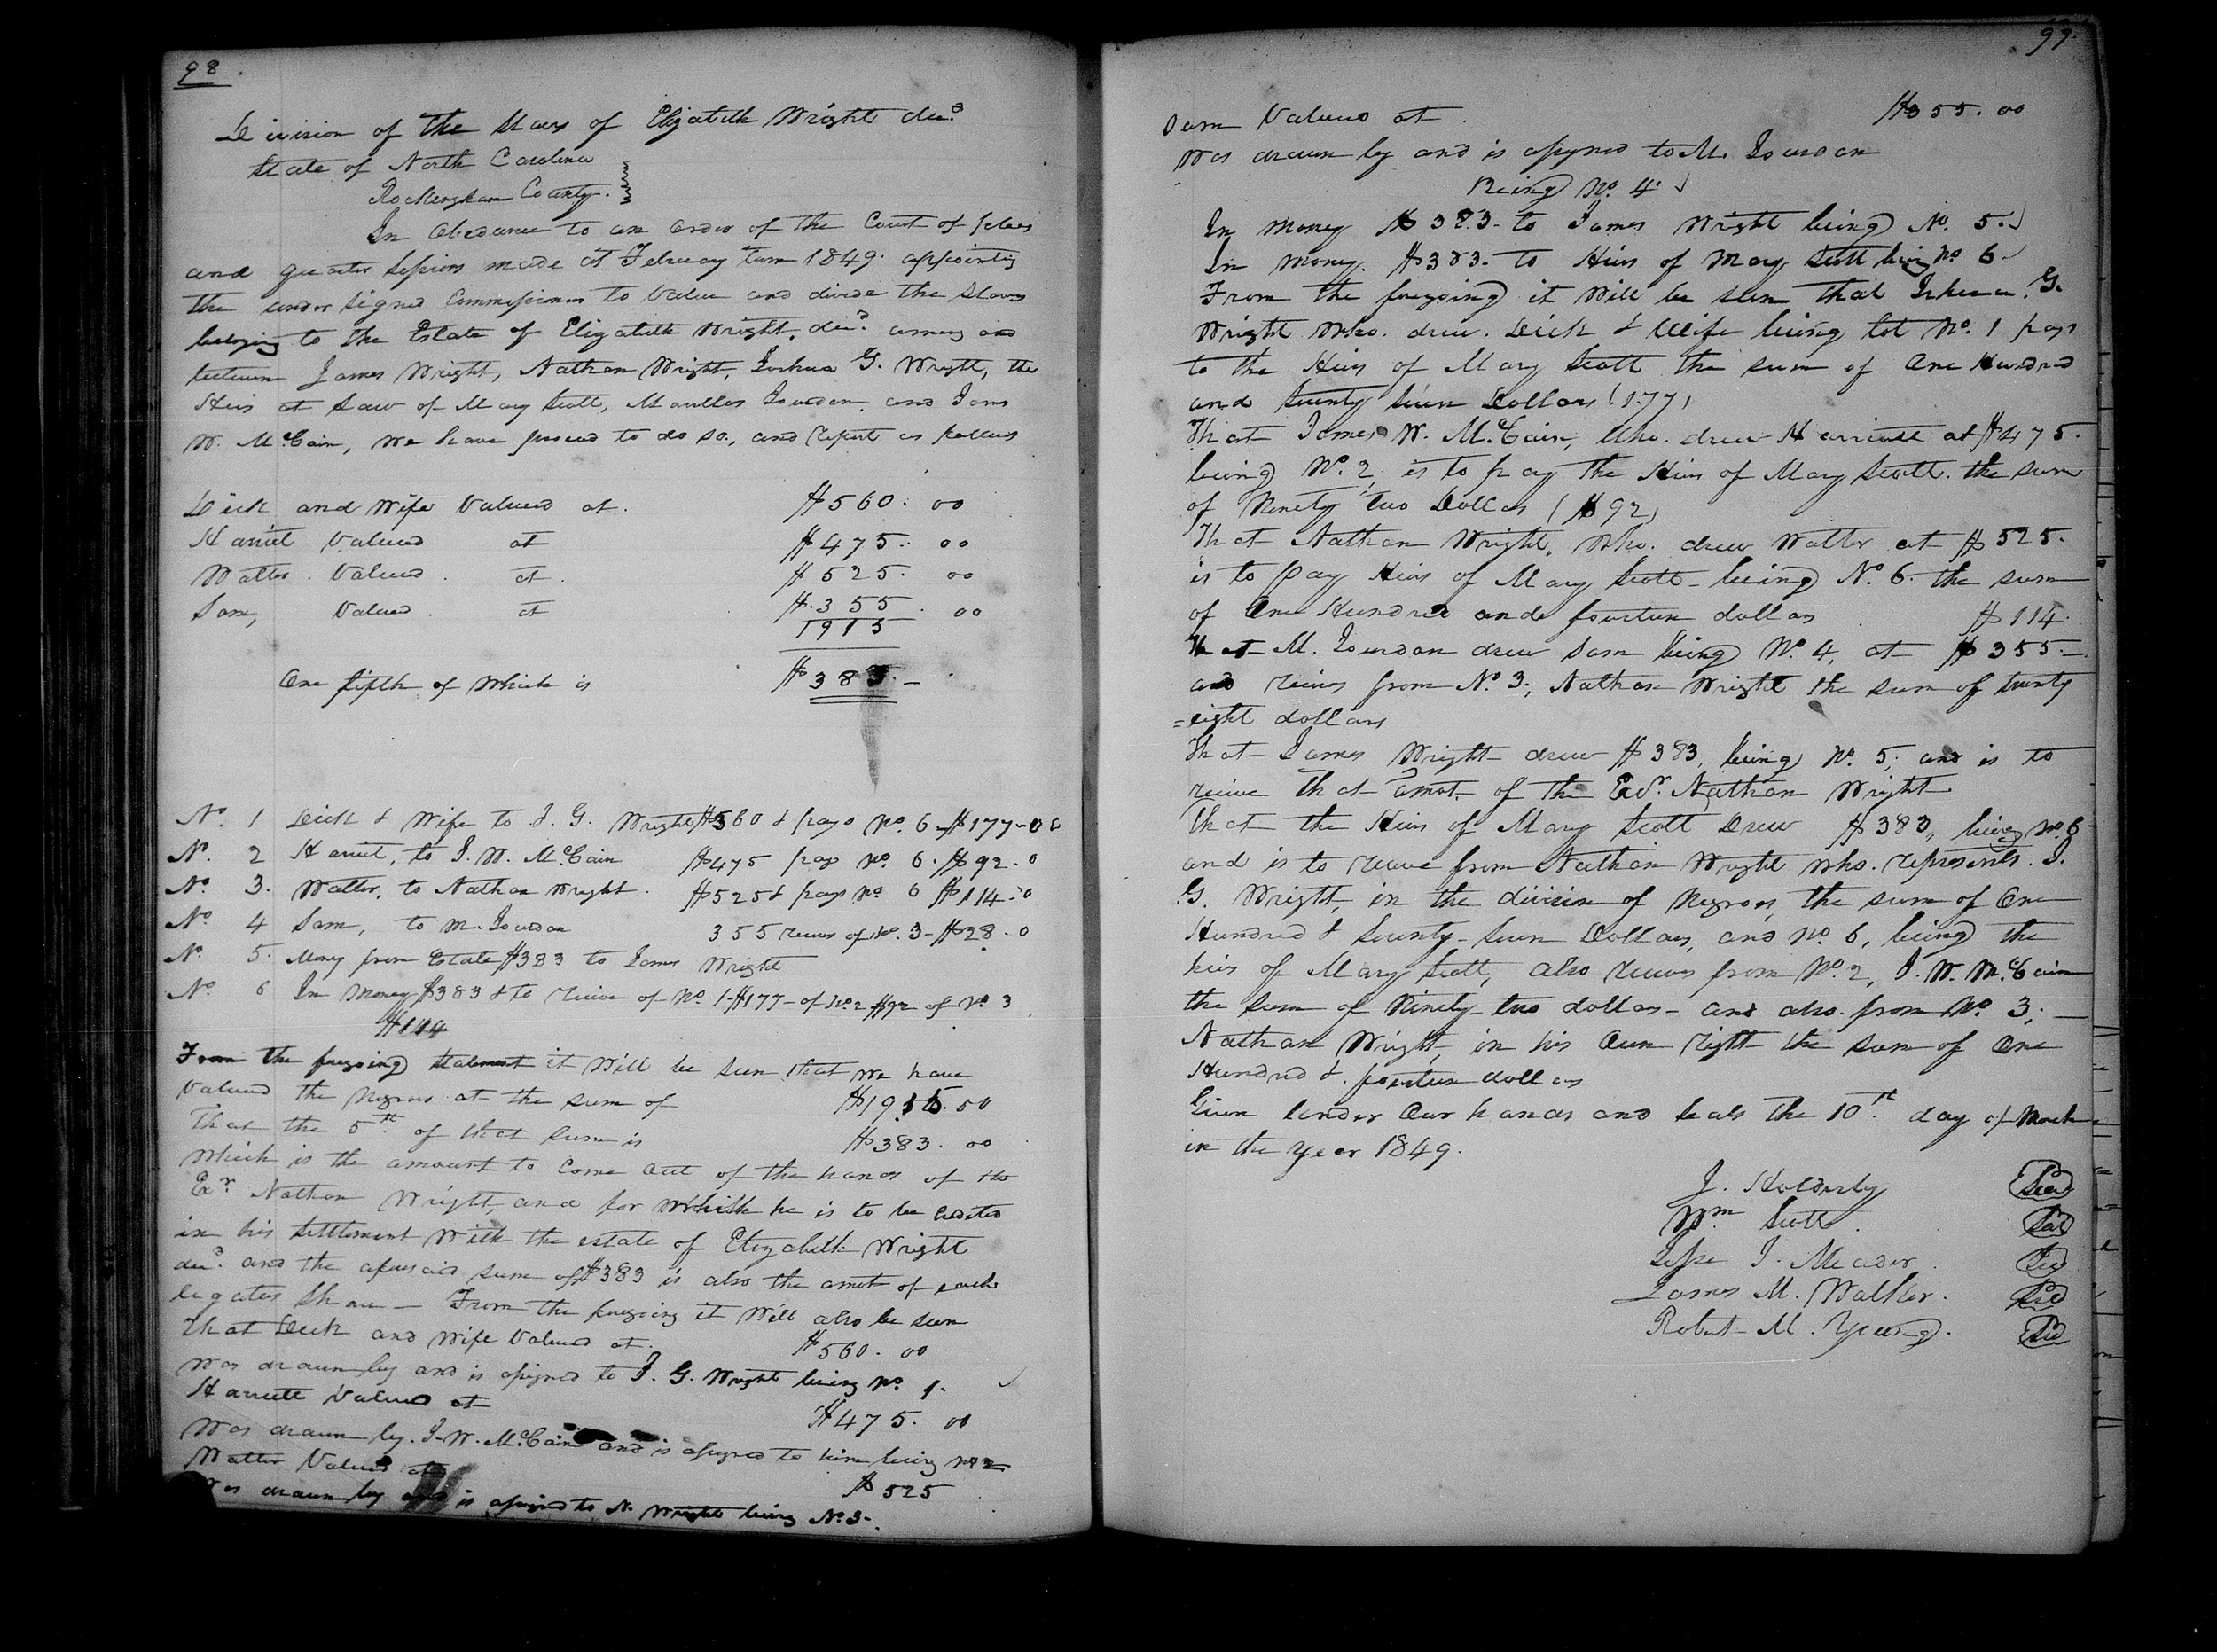 98.
Division of the Slaves of Elizabeth Wright decd
State of North Carolina
Rockingham County.
In Obedance to an order of the Court of pleas
and quarter Sessions made at February term 1849. appointing
the under signed Commissioners to value and divide the Slaves
belonging to the Estate of Elizabeth Wright, decd. among and
between James Wright, Nathan Wright, Joshua G. Wright, the
Heirs at Law of Mary Scott, and James
W. McCain, We have proceed to do so, and report as follows
Dick and Wife Valued at. $560. 00
Harriet Valued at $475. 00
Walter. Valued. at. $525. 00
Sam, Valued. at $.355. 00
1915
One fifth of which is $383. –
No. 1 Dick & Wife to J. G. Wright $560 & pays No. 6 – $177–00
No. 2 Harriet, to J. W. McCain $475 pays No. 6. $92.0
No. 3. Walter, to Nathan Wright. $525 & pays No 6 $114–0
No 4 Sam, to M. 355 receives of No. 3– $28.0
No. 5. Money from Estate $383 to James Wright
No 6 In Money $383 & to receive of No. 1–$177– of No 2 $92 of No. 3
$114
From the foregoing statement it Will be seen that we have
Valued the Negroes at the sum of $1915.00
That the 5th. of that sum is $383. 00
Which is the amount to Come out of the hands of the
Exr. Nathan Wright, and for which he is to be credited
in his settlement With the estate of Elizabeth Wright
decd. and the aforesaid sum of $383 is also the amot of each
legatees Share – From the foregoing it Will also be seen
that Dick and Wife Valued at. $560. 00
Was drawn by and is assigned to J. G. Wright being No. 1.
Harriett Valued at $475. 00
Was drawn by. J. W. McCain and is assigned to him being No 2
Walter Valued at $525
Was drawn by and is assigned to N. Wright being No. 3–.
99.
Sam Valued at. $355. 00
Was drawn by and is assigned to M.
Being No. 4.
In Money $383– to James Wright being No. 5.
In Money. $383– to Heirs of Mary Scott being No 6.
From the foregoing it Will be seen that Joshua. G.
Wright Who. drew. Dick & Wife being lot No. 1 pays
to the Heirs of Mary Scott the sum of One Hundred
and Seventy Seven Dollars (177)
That James W. McCain, Who. drew Harriett at $475.
being No. 2, is to pay the Heirs of Mary Scott. the sum
of Ninety two Dollars ($92)
That Nathan Wright, Who. drew Walter at $525.
is to pay Heirs of Mary Scott – being No. 6. the sum
of One Hundred and fourteen dollars $114.
That M. drew Sam being No. 4, at $355.–
and receives from No. 3., Nathan Wright the sum of twenty
=eight dollars
That James Wright drew $383, being No. 5; and is to
receive that amot. of the Exr. Nathan Wright
That the Heirs of Mary Scott Drew $383, being No 6
and is to receive from Nathan Wright who. represents. J.
G. Wright, in the division of Negroes, the sum of One
Hundred & Seventy-Seven Dollars, and No. 6, being the
heirs of Mary Scott, also receives from No. 2, J. W. McCain
the sum of Ninety-two dollars – and also from No. 3.–
Nathan Wright, in his Own right the sum of One
Hundred &. fourteen dollars
Given Under Our hands and Seals the 10th. day of March
in the year 1849.
J. Holderby Seal
Wm Scott. Seal
Jesse J. Meador. Seal
James M. Walker. Seal
Robert M. Young. Seal